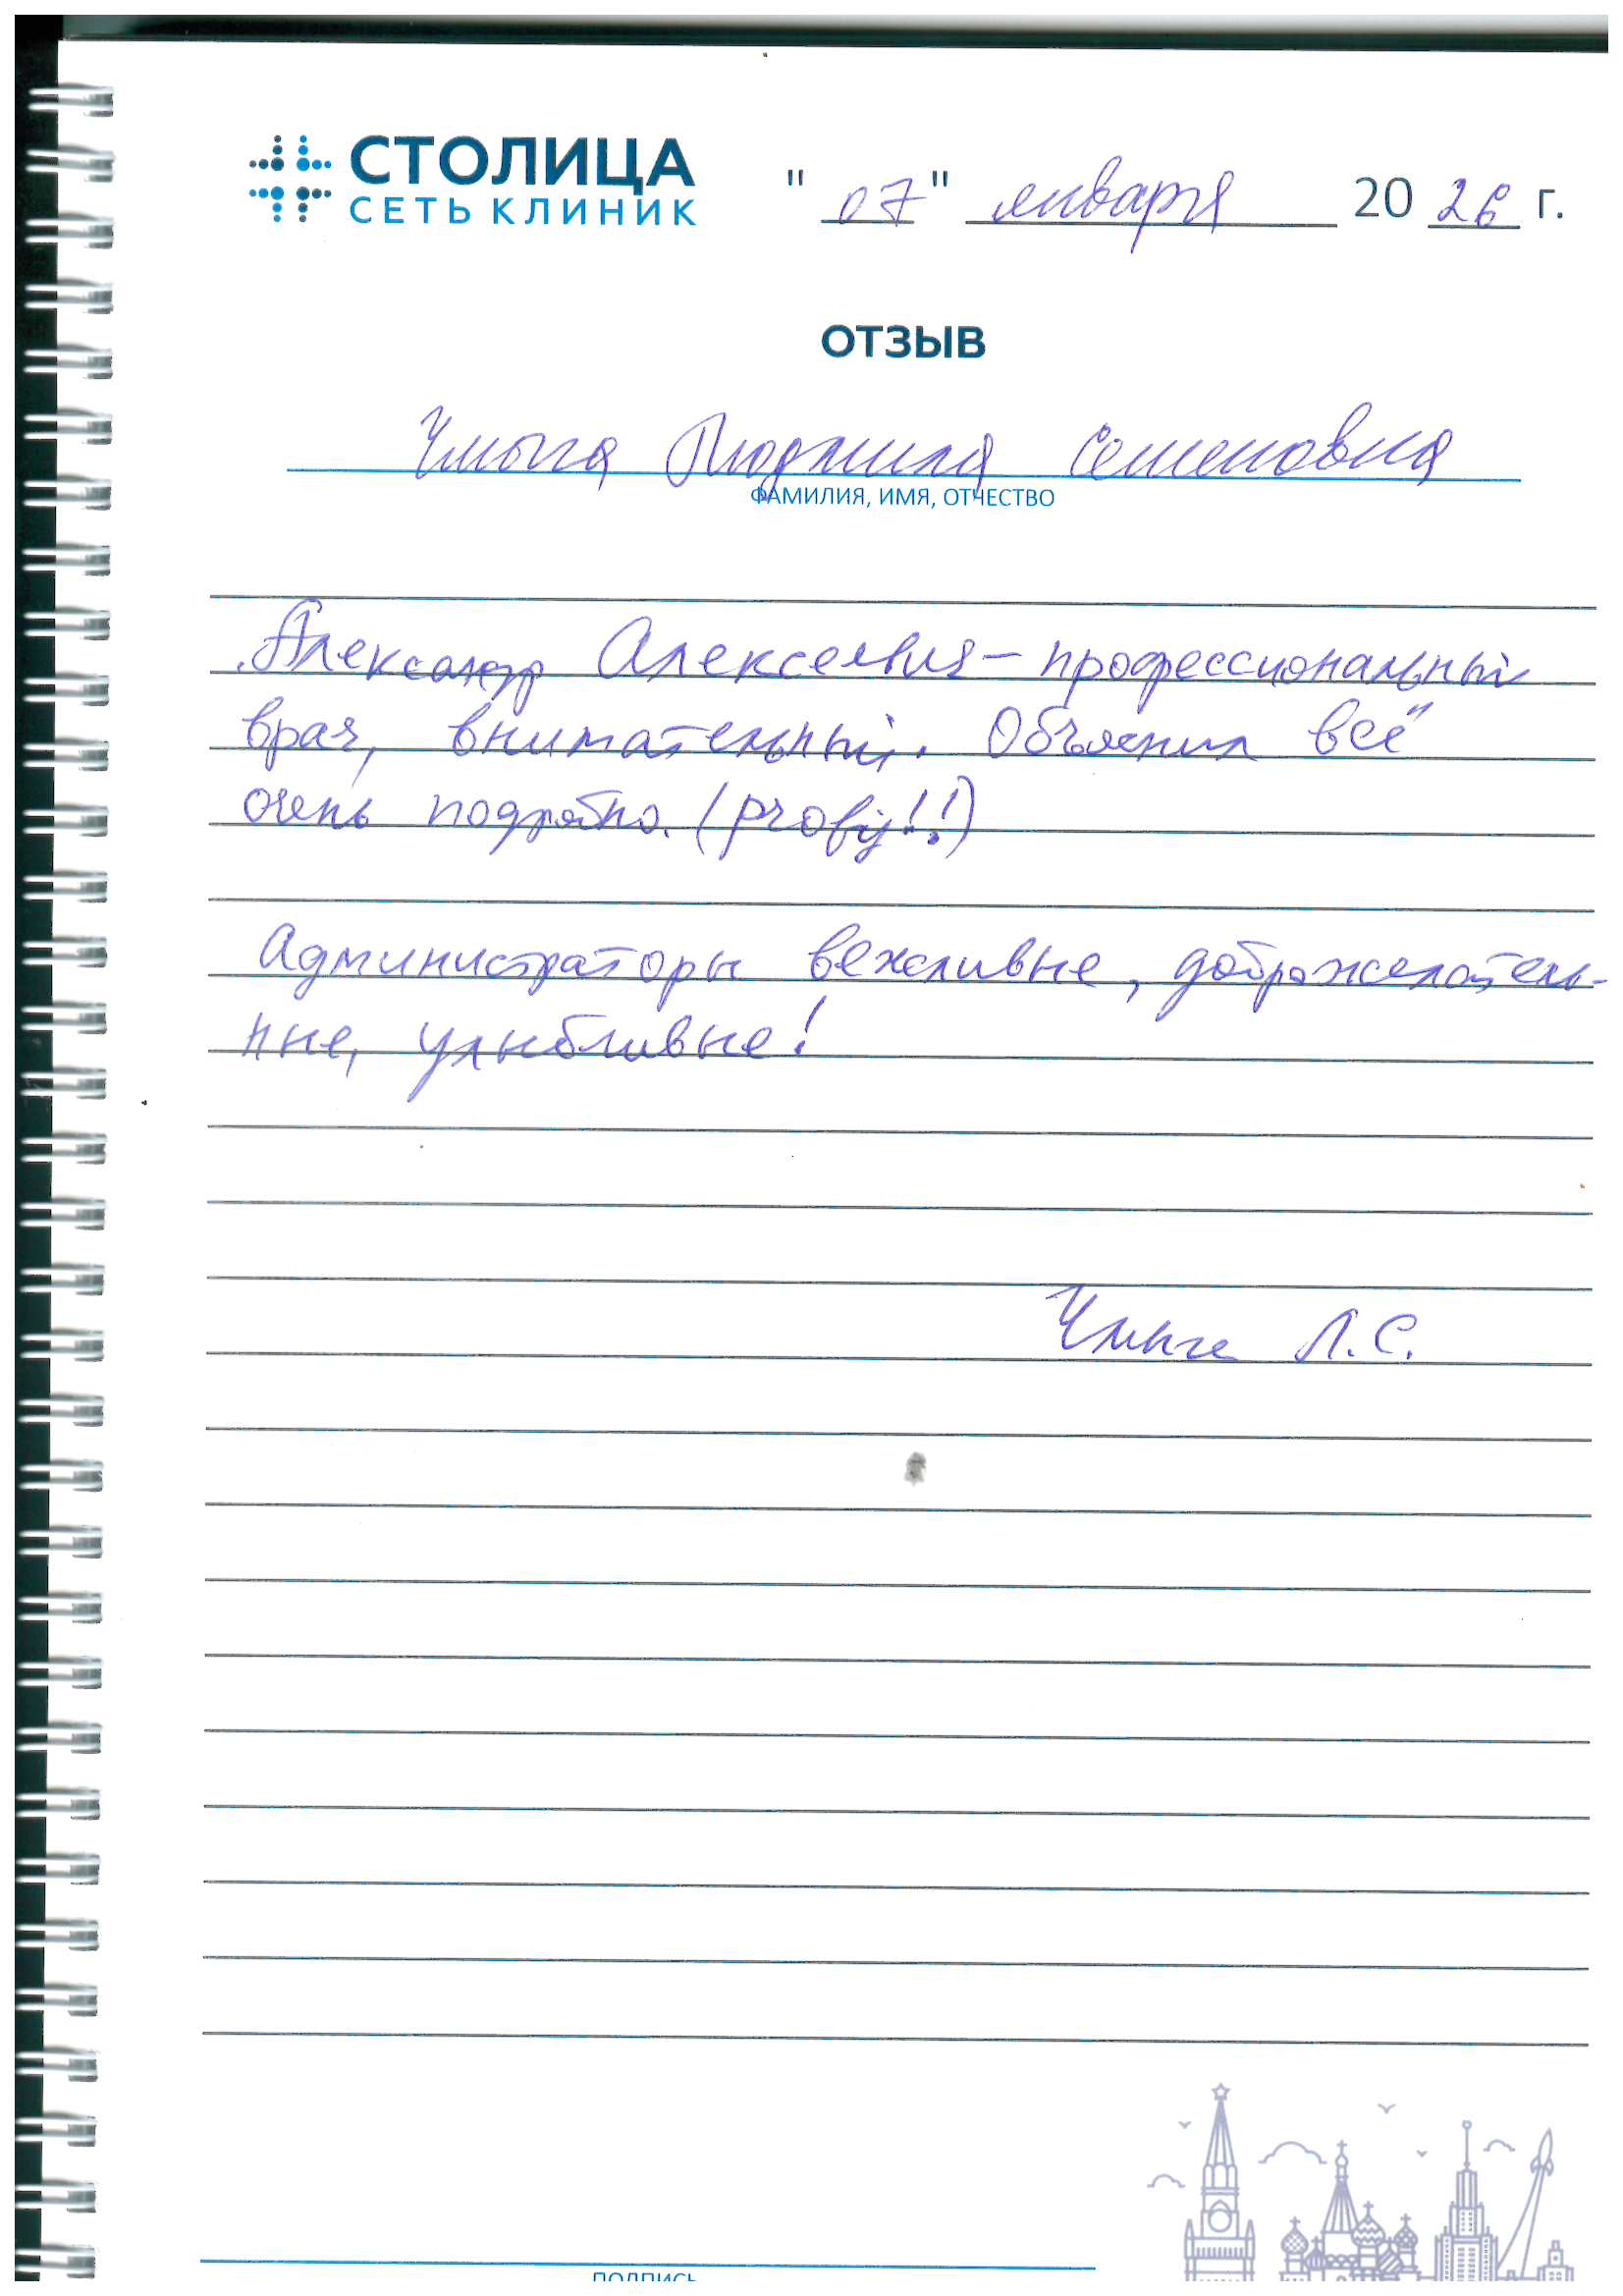 СТОЛИЦА
СЕТЬ КЛИНИК
"07" января 2026 г.
ОТЗЫВ
Людмила Семеновна
ФАМИЛИЯ, ИМЯ, ОТЧЕСТВО
Александр Алексеевич – профессиональный
врач, внимательный. Объяснил всё
очень подробно. (profy!!)
Администраторы вежливые, доброжелатель-
ные, улыбливые!
Л.С.
ПОДПИСЬ